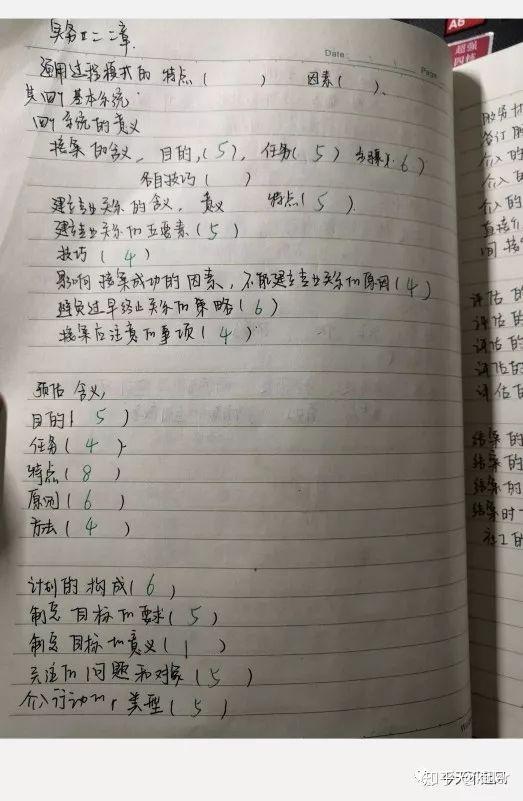 实务第二章
Date:
Page
通用过程模式的特点( ) 因素( )、
其四个基本系统.
四个系统的意义
接案的含义、目的,(5), 任务(5) 步骤(6)
各自技巧( )
建立专业关系的含义, 意义 特点(5)
建立专业关系的五要素(5)
技巧(4)
影响接案成功的因素、不能建立专业关系的原因(4)
避免过早终止关系的策略(6)
接案应注意的事项(4)
预估含义,
目的(5)
任务(4)
特点(8)
原则(6)
方法(4)
计划的构成(6)
制定目标的要求(5)
制定目标的意义(1)
关注的问题和对象(5)
介入行动的 类型(5)
A5
超强
介入的
介入的
介入的
直接介
间接
评估的
评估的
评估的
评估的
评估的
结案的
结案的
结案的
结案时
社工的
知乎